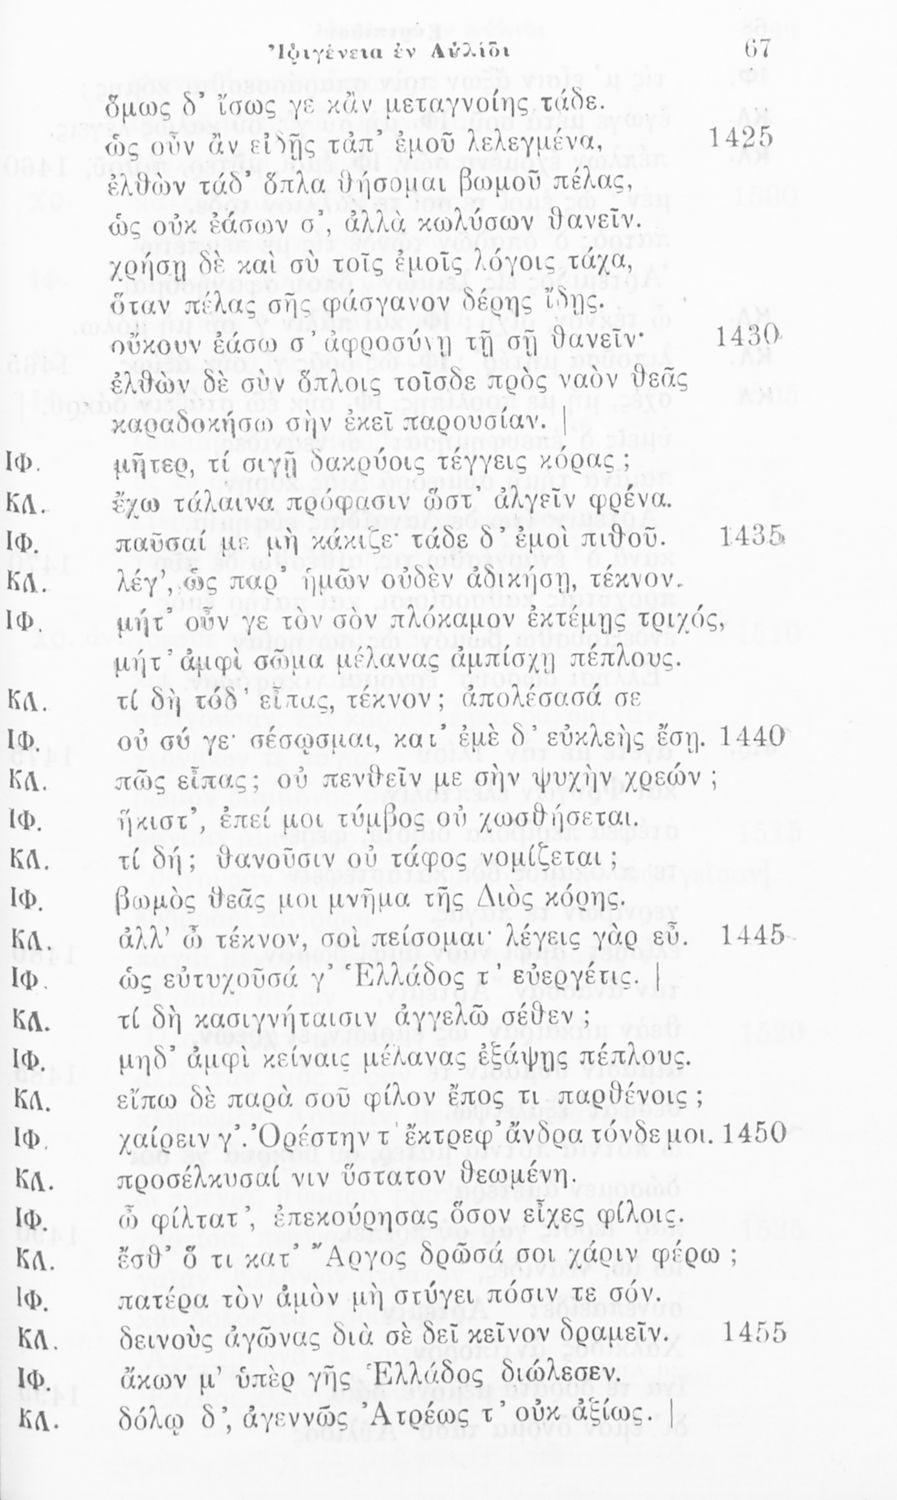 Ἰφιγένεια ἐν Αὐλίδι 67
ὅμως δ’ ἴσως γε κἂν μεταγνοίης τάδε.
ὡς οὖν ἂν εἰδῇς τἀπ’ ἐμοῦ λελεγμένα, 1425
ἐλθὼν τάδ’ ὅπλα θήσομαι βωμοῦ πέλας,
ὡς οὐκ ἐάσων σ’, ἀλλὰ κωλύσων θανεῖν.
χρήσῃ δὲ καὶ σὺ τοῖς ἐμοῖς λόγοις τάχα,
ὅταν πέλας σῆς φάσγανον δέρης ἴδῃς.
οὔκουν ἐάσω σ’ ἀφροσύνῃ τῇ σῇ θανεῖν· 1430
ἐλθὼν δὲ σὺν ὅπλοις τοῖσδε πρὸς ναὸν θεᾶς
καραδοκήσω σὴν ἐκεῖ παρουσίαν. |
ΙΦ. μῆτερ, τί σιγῇ δακρύοις τέγγεις κόρας ;
ΚΛ. ἔχω τάλαινα πρόφασιν ὥστ’ ἀλγεῖν φρένα.
ΙΦ. παῦσαί με μὴ κάκιζε· τάδε δ’ ἐμοὶ πιθοῦ. 1435
ΚΛ. λέγ’, ὡς παρ’ ἡμῶν οὐδὲν ἀδικήσῃ, τέκνον.
ΙΦ. μήτ’ οὖν γε τὸν σὸν πλόκαμον ἐκτέμῃς τριχός,
μήτ’ ἀμφὶ σῶμα μέλανας ἀμπίσχῃ πέπλους.
ΚΛ. τί δὴ τόδ’ εἶπας, τέκνον ; ἀπολέσασά σε
ΙΦ. οὐ σύ γε· σέσῳσμαι, κατ’ ἐμὲ δ’ εὐκλεὴς ἔσῃ. 1440
ΚΛ. πῶς εἶπας ; οὐ πενθεῖν με σὴν ψυχὴν χρεών ;
ΙΦ. ἥκιστ’, ἐπεί μοι τύμβος οὐ χωσθήσεται.
ΚΛ. τί δή ; θανοῦσιν οὐ τάφος νομίζεται ;
ΙΦ. βωμὸς θεᾶς μοι μνῆμα τῆς Διὸς κόρης.
ΚΛ. ἀλλ’ ὦ τέκνον, σοὶ πείσομαι· λέγεις γὰρ εὖ. 1445
ΙΦ. ὡς εὐτυχοῦσά γ’ Ἑλλάδος τ’ εὐεργέτις. |
ΚΛ. τί δὴ κασιγνήταισιν ἀγγελῶ σέθεν ;
ΙΦ. μηδ’ ἀμφὶ κείναις μέλανας ἐξάψῃς πέπλους.
ΚΛ. εἴπω δὲ παρὰ σοῦ φίλον ἔπος τι παρθένοις ;
ΙΦ. χαίρειν γ’. Ὀρέστην τ’ ἔκτρεφ’ ἄνδρα τόνδε μοι. 1450
ΚΛ. προσέλκυσαί νιν ὕστατον θεωμένη.
ΙΦ. ὦ φίλτατ’, ἐπεκούρησας ὅσον εἶχες φίλοις.
ΚΛ. ἔσθ’ ὅ τι κατ’ Ἄργος δρῶσά σοι χάριν φέρω ;
ΙΦ. πατέρα τὸν ἀμὸν μὴ στύγει πόσιν τε σόν.
ΚΛ. δεινοὺς ἀγῶνας διὰ σὲ δεῖ κεῖνον δραμεῖν. 1455
ΙΦ. ἄκων μ’ ὑπὲρ γῆς Ἑλλάδος διώλεσεν.
ΚΛ. δόλῳ δ’, ἀγεννῶς Ἀτρέως τ’ οὐκ ἀξίως. |